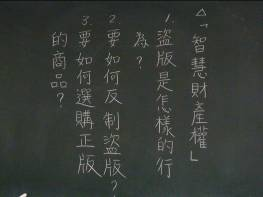 △「智慧財產權」
1.盜版是怎樣的行
為?
2.要如何反制盜版?
3.要如何選購正版
的商品?